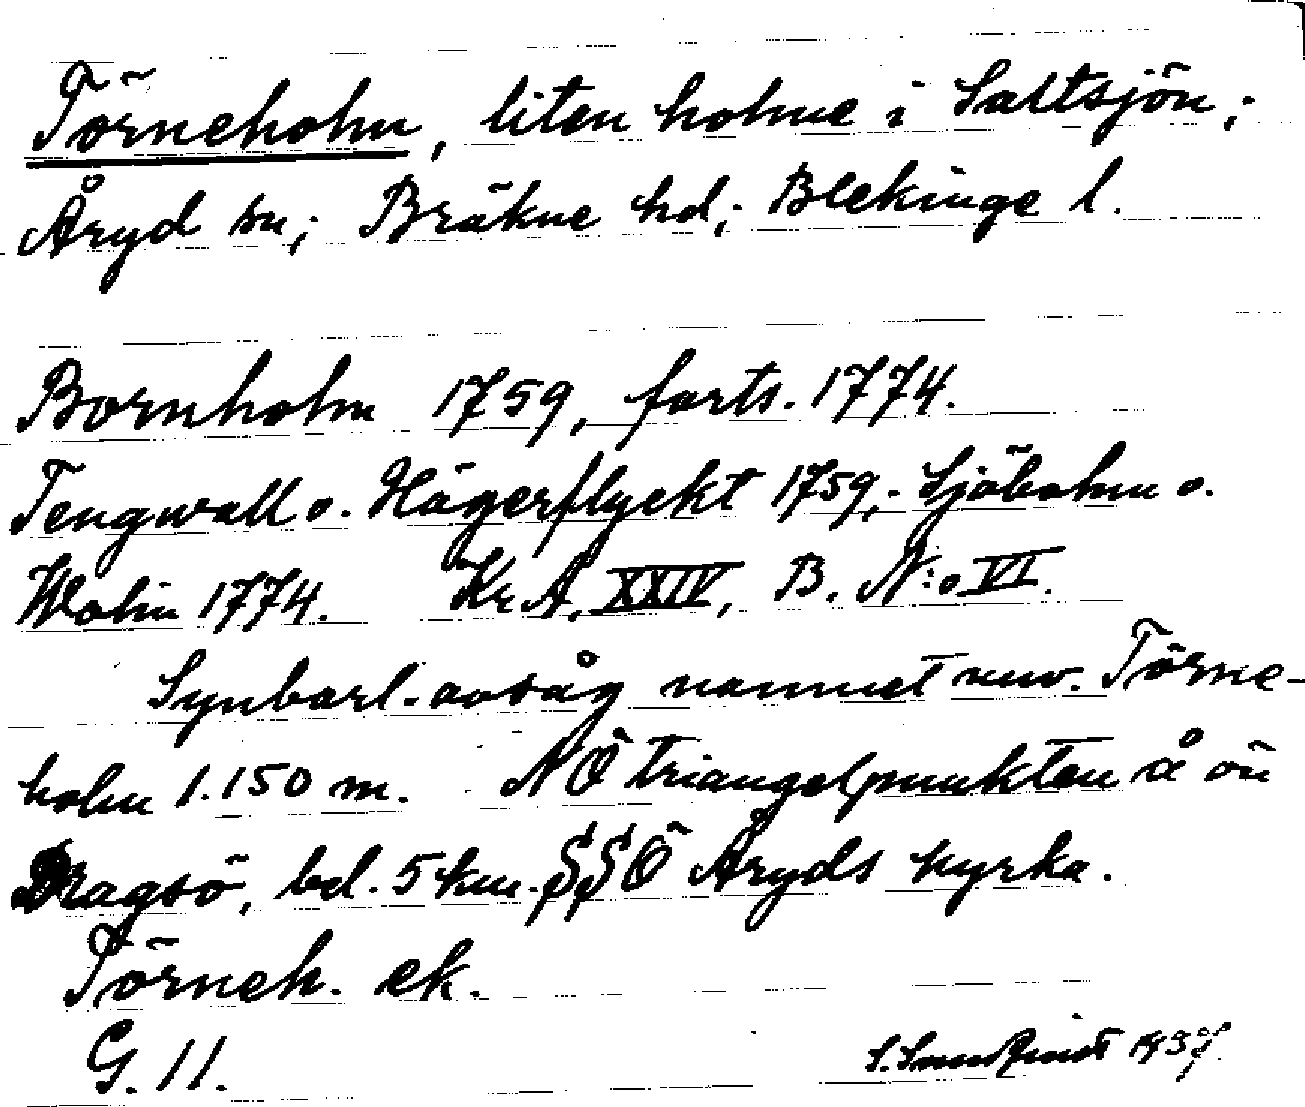 Törneholm, liten holme i Saltsjön;
Åryd sn; Bräkne hd; Blekinge l.
Bornholm 1759, forts. 1774.
Tengwall o. Hägerflyckt 1759; Sjöbohm o.
Wohin 1774. Kr A, XXIV, B. N:o VI.
Synbarl. avsåg namnet nuv. Törne-
holm 1.150 m. NÖ triangelpunkten å ön
Dragsö, bel. 5 km. SSÖ Åryds kyrka.
Törneh. ek.
G. 11. 1937